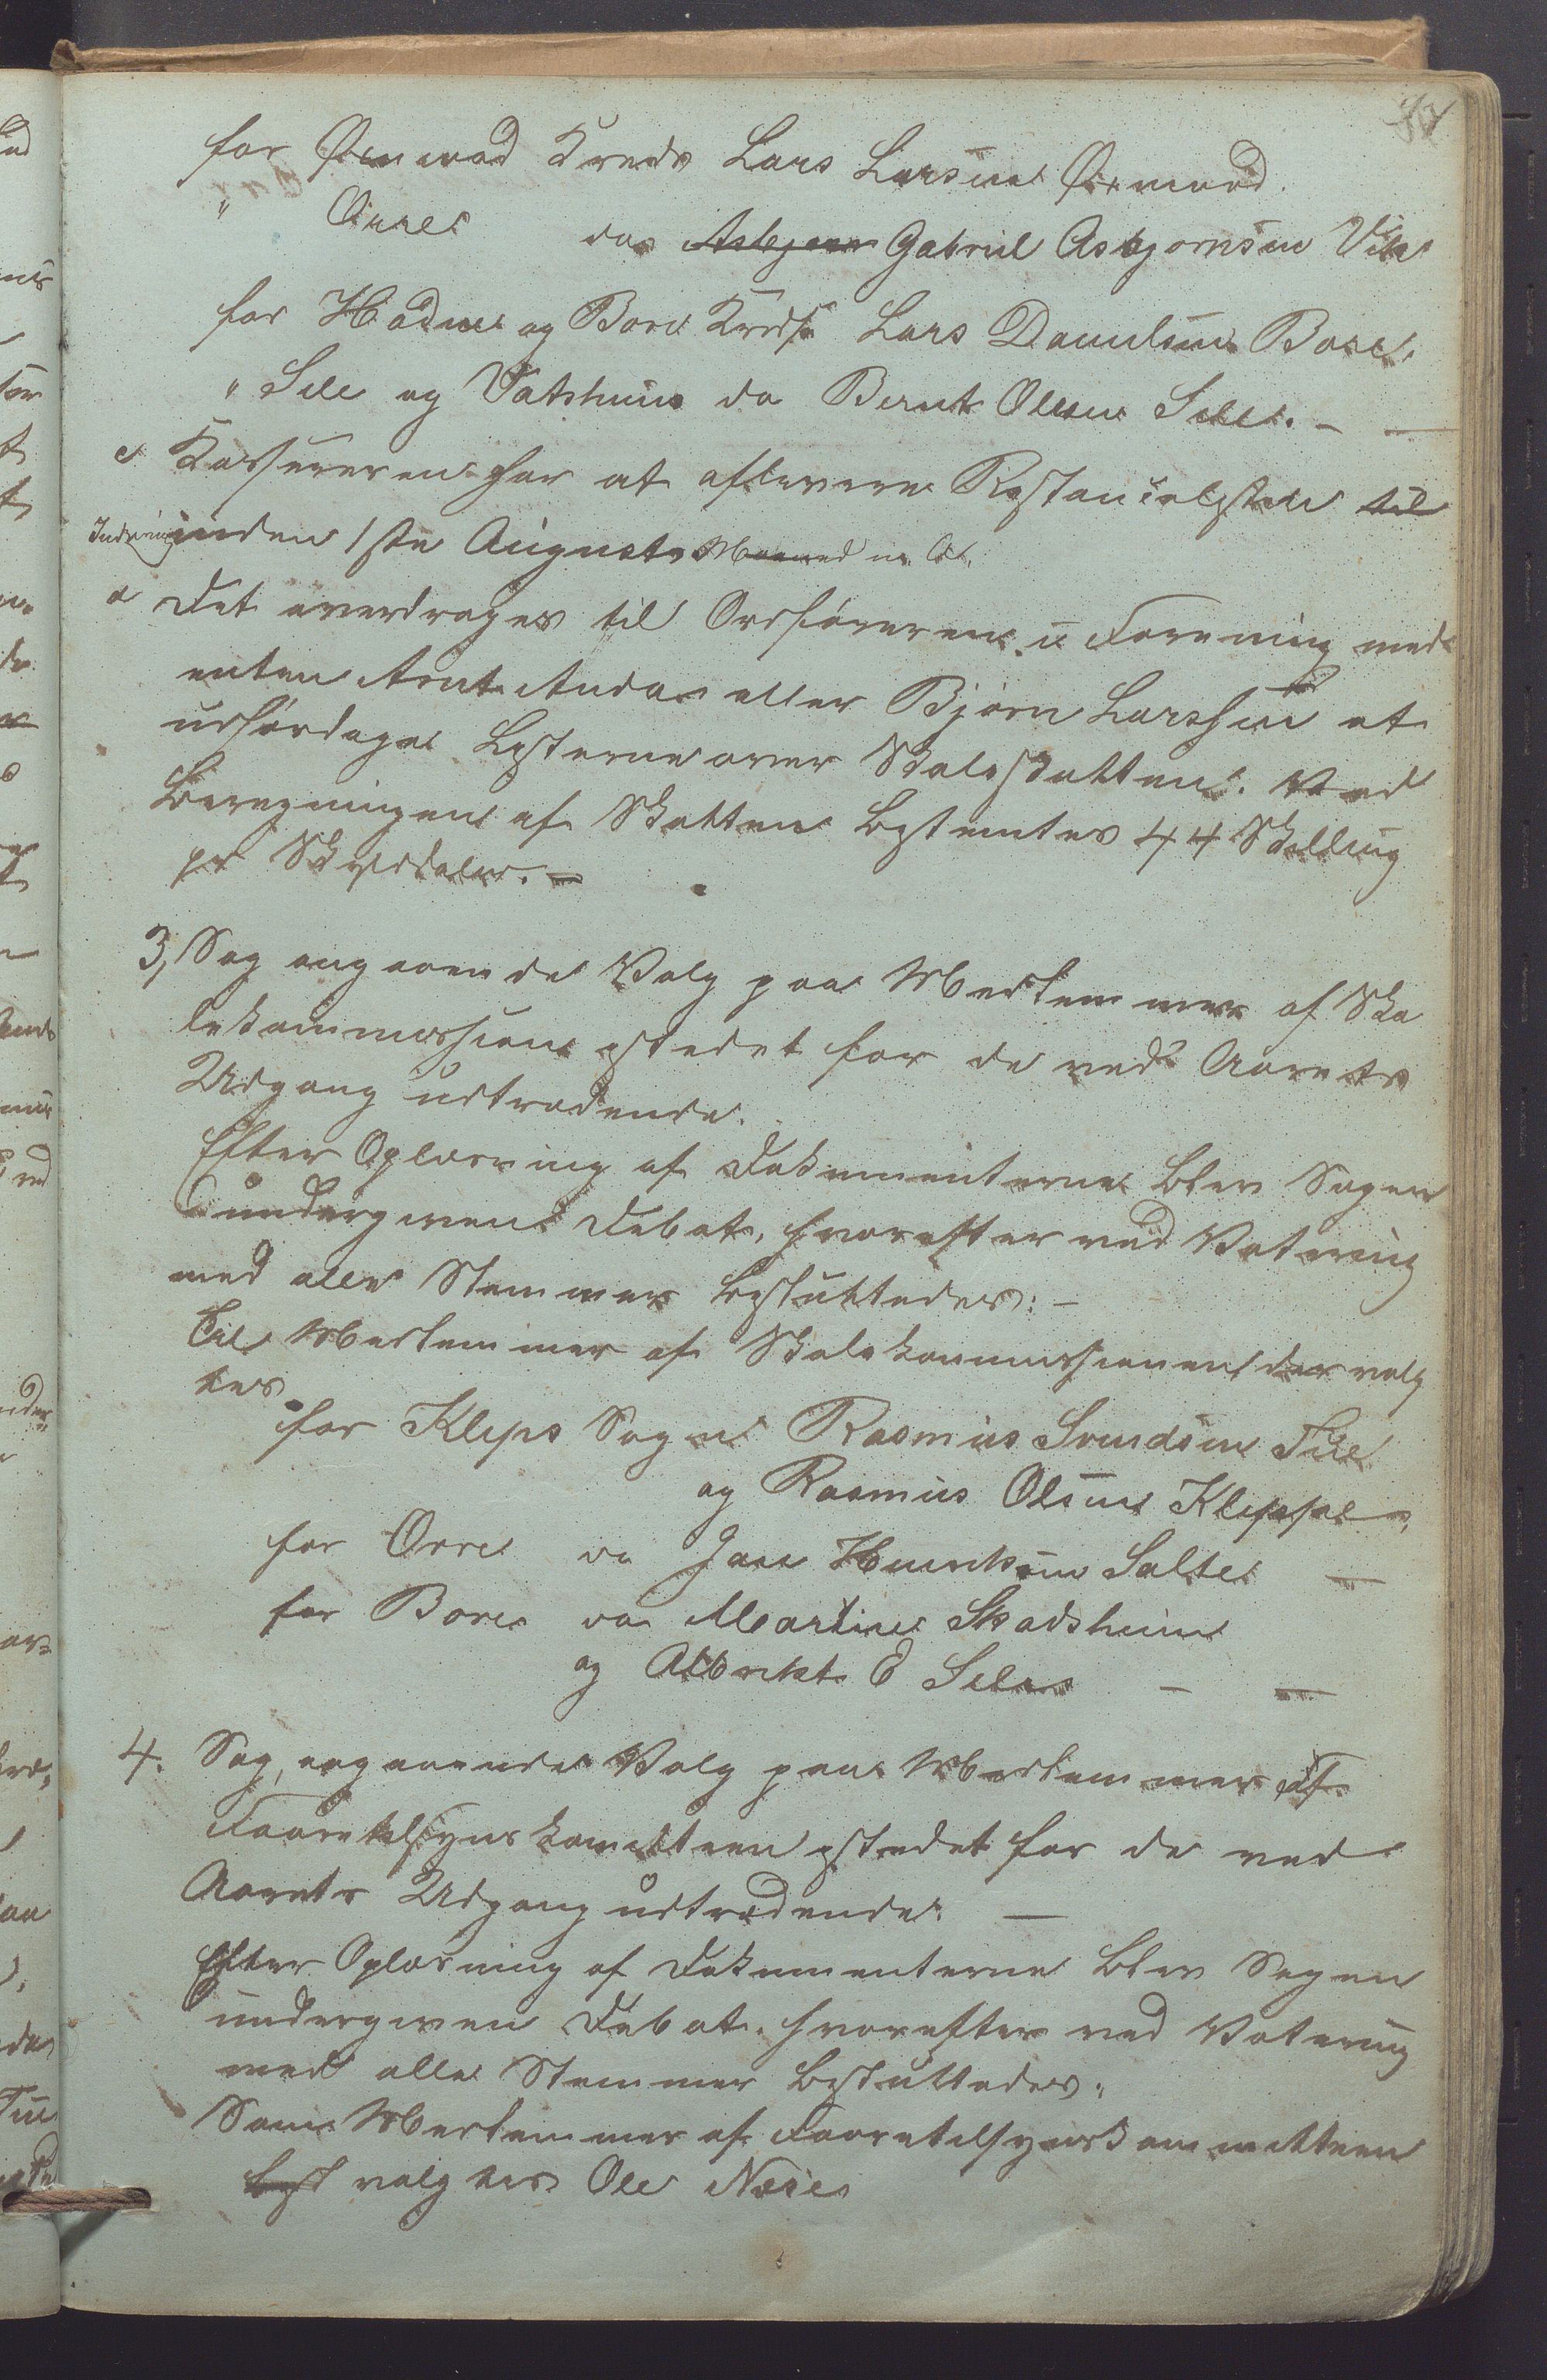 for Øxnevad Kreds Lars Larsen Øxnevad.
" Orre do ~~Asbjørn~~ Gabriel Asbjørnsen Vik
for Hodne og Bore Kreds Lars Danielsen Bore.
" Sele og Vatshuus do Bernt Olsen Sele. –
c Kassereren har at aflevere Restancelisten ~~til~~
inden 1ste August Maaned n. A.
d Det overdrages til Ordføreren i Forening med
enten Arnt Anda eller Bjørn Larssen at
udfærdige Listerne over Skoleskatten. Ved
Beregningen af Skatten bestemtes 44 Skilling
pr Skylddaler. –
3, Sag angaaende Valg paa Medlemmer af Sko
lekommissionen istedet for de ved Aarets
Udgang udtrædende.
Efter Oplæsning af Dokumenterne blev Sagen
undergiven Debat, hvorefter ved Votering
med alle Stemmer besluttedes: –
Til Medlemmer af Skolekommissionen ~~der~~ valg
tes
for Kleps Sogn Rasmus Svendsen Tu
og Rasmus Olsen Kleppe,
for Orre do Jan Henriksen Salte –
for Bore do Martin Skadsheim
og Albrikt E Sele – –
4. Sag, angaaende Valg paa Medlemmer af
Faaretilsynskomiteen istedet for de ved
Aarets Udgang udtrædende. –
Efter Oplæsning af Dokumenterne blev Sagen
undergiven Debat, hvorefter ved Votering
med alle Stemmer besluttedes:
Som Medlemmer af Faaretilsynskommitteen
~~best~~ valgtes Ole Næse